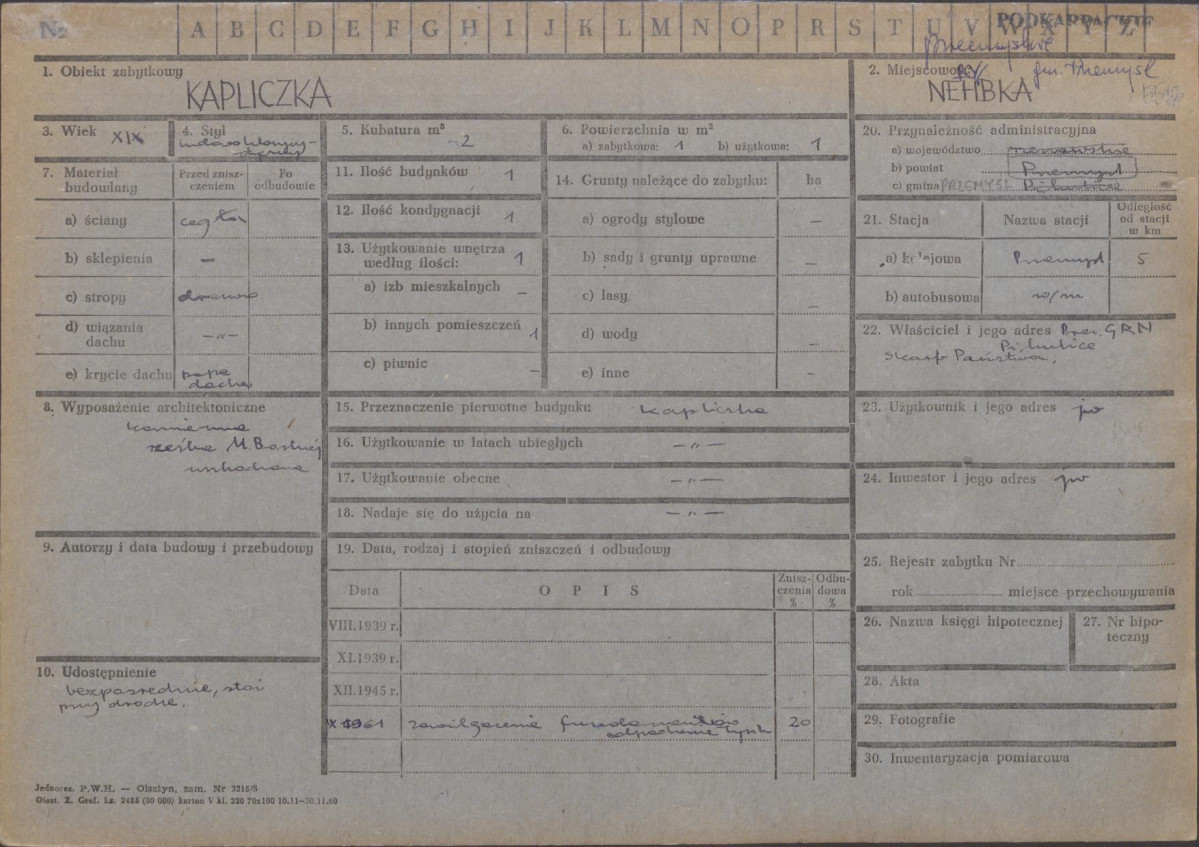 Nr A B C D E F G H I J K L M N O P R S T U V W X Y Z
PODKARPACKIE
przemyskie
1. Obiekt zabytkowy
KAPLICZKA
2. Miejscowość
gm. Przemyśl
NEHRBKA
3. Wiek XIX
4. Styl
5. Kubatura m³
2
6. Powierzchnia w m²
a) zabytkowa: 1 b) użytkowa: 1
7. Materiał budowlany
Przed zniszczeniem
Po odbudowie
a) ściany cegła
b) sklepienia —
c) stropy drewno
d) wiązania dachu —„—
e) krycie dachu papa
8. Wyposażenie architektoniczne
kamienna
rzeźba M. Boskiej
uszkodzona
9. Autorzy i data budowy i przebudowy
10. Udostępnienie
bezpośrednie, stoi
przy drodze.
11. Ilość budynków 1
12. Ilość kondygnacji 1
13. Użytkowanie wnętrza
według ilości: 1
a) izb mieszkalnych –
b) innych pomieszczeń 1
c) piwnic –
14. Grunty należące do zabytku: ha
a) ogrody stylowe –
b) sady i grunty uprawne –
c) lasy –
d) wody –
e) inne –
15. Przeznaczenie pierwotne budynku kapliczka
16. Użytkowanie w latach ubiegłych —„—
17. Użytkowanie obecne —„—
18. Nadaje się do użycia na —„—
19. Data, rodzaj i stopień zniszczeń i odbudowy
Data O P I S Zniszczenia % Odbudowa %
VIII.1939 r.
XI.1939 r.
XII.1945 r.
X 1961 zawilgocenie fundamentów 20
odpadanie tynku
20. Przynależność administracyjna
a) województwo rzeszowskie
b) powiat Przemyśl
c) gmina PRZEMYŚL Pikulice
21. Stacja Nazwa stacji Odległość od stacji w km
a) kolejowa Przemyśl 5
b) autobusowa w/m
22. Właściciel i jego adres Prez. GRN
Pikulice
Skarb Państwa,
23. Użytkownik i jego adres jw
24. Inwestor i jego adres jw
25. Rejestr zabytku Nr
rok miejsce przechowywania
26. Nazwa księgi hipotecznej
27. Nr hipoteczny
28. Akta
29. Fotografie
30. Inwentaryzacja pomiarowa
Jednoraz. P.W.H. — Olsztyn, zam. Nr 3215/S
Olszt. Z. Graf. Lz. 2485 (30 000) karton V kl. 220 70x100 10.11—30.11.60